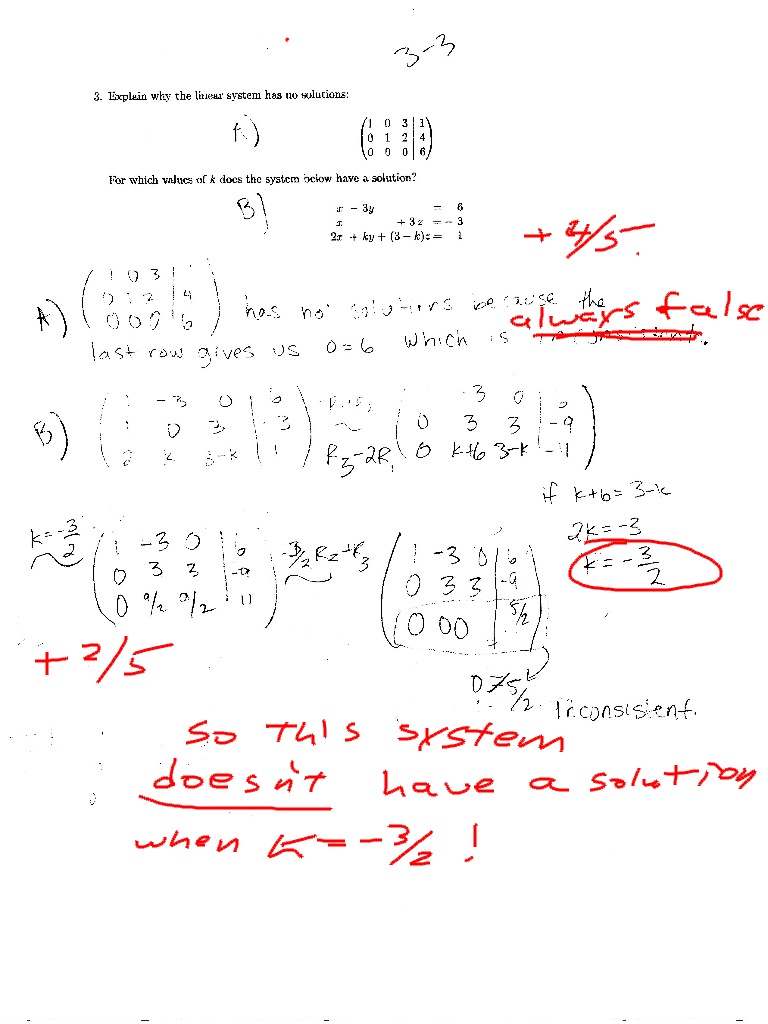 3-3
3. Explain why the linear system has no solutions:
A)
1 0 3 | 1
0 1 2 | 4
0 0 0 | 6
For which values of k does the system below have a solution?
B)
x - 3y = 6
x + 3z = - 3
2x + ky + (3 - k)z = 1
+ 4/5
A)
1 0 3 |
0 1 2 | 4
0 0 0 | 6
has no solutions because the
always false
last row gives us 0=6 which is inconsistent.
B)
1 -3 0 | 6
1 0 3 | -3
2 k 3-k | 1
R3-2R1
-3 0 | 6
0 3 3 | -9
0 k+6 3-k | -11
if k+6=3-k
2k=-3
k=-3/2
k=-3/2
1 -3 0 | 6
0 3 3 | -9
0 9/2 9/2 | 11
-3/2 R2+R3
1 -3 0 | 6
0 3 3 | -9
0 0 0 | 5/2
0≠5/2
∴ Inconsistent.
+ 2/5
So THIS system
doesn't have a solution
when K=-3/2 !